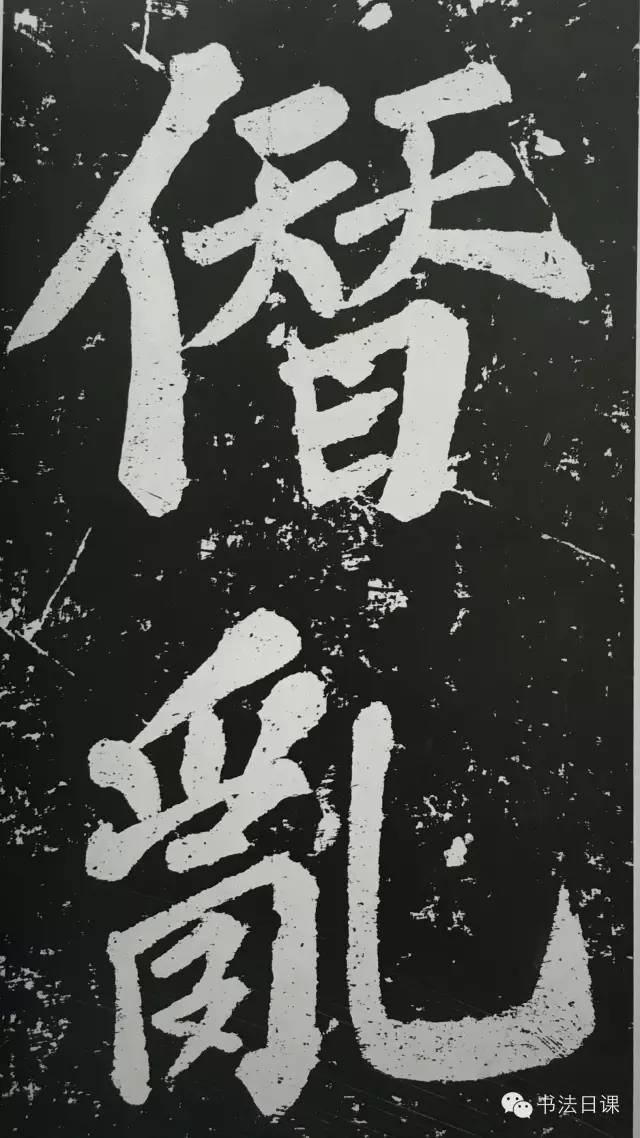 僭
亂
书法日课